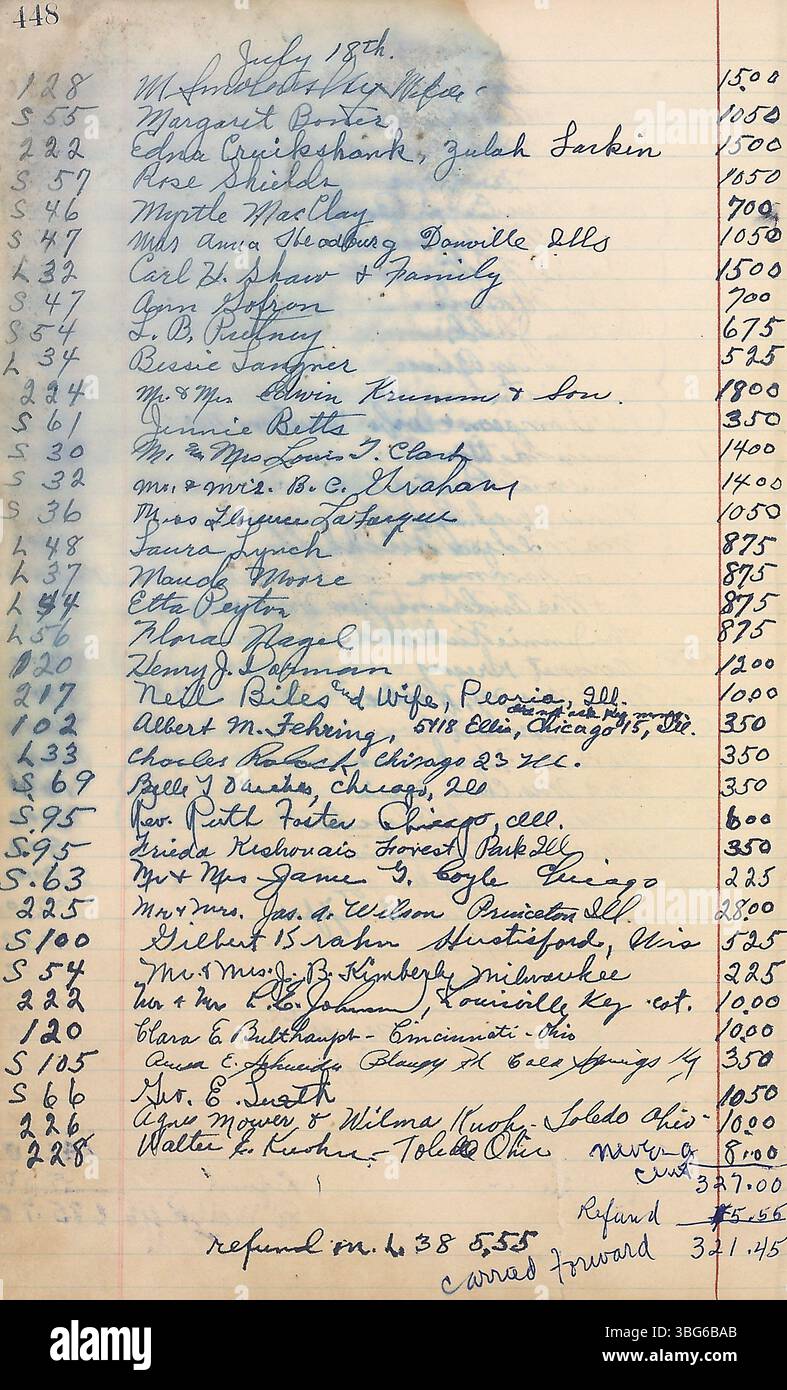 448
July 18th.
128 M Smolensky Wife 15.00
S 55 Margaret 1050
222 Edna Cruikshank, Zulah Larkin 1500
S 57 Rose Shields 1050
S 46 Myrtle MacClay 700
S 47 Mrs Anna Danville Ills 1050
L 32 Carl H. Shaw & Family 1500
S 47 Ann 700
S 54 L. B. 675
L 34 Bessie Langner 525
224 Mr. & Mrs Edwin Krumm & Son. 1800
S 61 Jennie Betts 350
S 30 M. Mrs Louis T. Clark 1400
S 32 Mr. & Mrs. B. C. Graham 1400
S 36 Miss Florence La Farque 1050
L 48 Laura Lynch 875
L 37 Maude Moore 875
L 44 Etta Peyton 875
L 56 Flora Nagel 875
120 Henry J. Dorman 12.00
217 Neil Biles and Wife, Peoria, Ill. 10.00
102 Albert M. Fehring, 5418 Ellis, Chicago 15, Ill. 350
L 33 Charles Chicago 23 Ill. 350
S. 69 Belle Chicago, Ill 350
S. 95 Rev. Ruth Foster Chicago, Ill. 600
S. 95 Frieda Forest Park Ill 350
S. 63 Mr & Mrs James G. Coyle Chicago 225
225 Mr & Mrs. Jas. A. Wilson Princeton Ill. 28.00
S 100 Gilbert Krahn Hustisford, Wis 525
S 54 Mr. & Mrs. J. B. Kimberly Milwaukee 225
222 Mr & Mrs Johnson, Louisville Ky 10.00
120 Clara E Bulthaupt - Cincinnati - Ohio 10.00
S 105 Anna E. Schneider Springs Ky 350
S 66 Geo. E. 1050
226 Agnes Mower & Wilma Kuohn - Toledo Ohio - 10.00
228 Walter E. Kuohn - Toledo Ohio 8.00
327.00
Refund 5.55
refund on L 38 5,55
carried forward 321.45
alamy
Image ID: 3BG6BAB
www.alamy.com